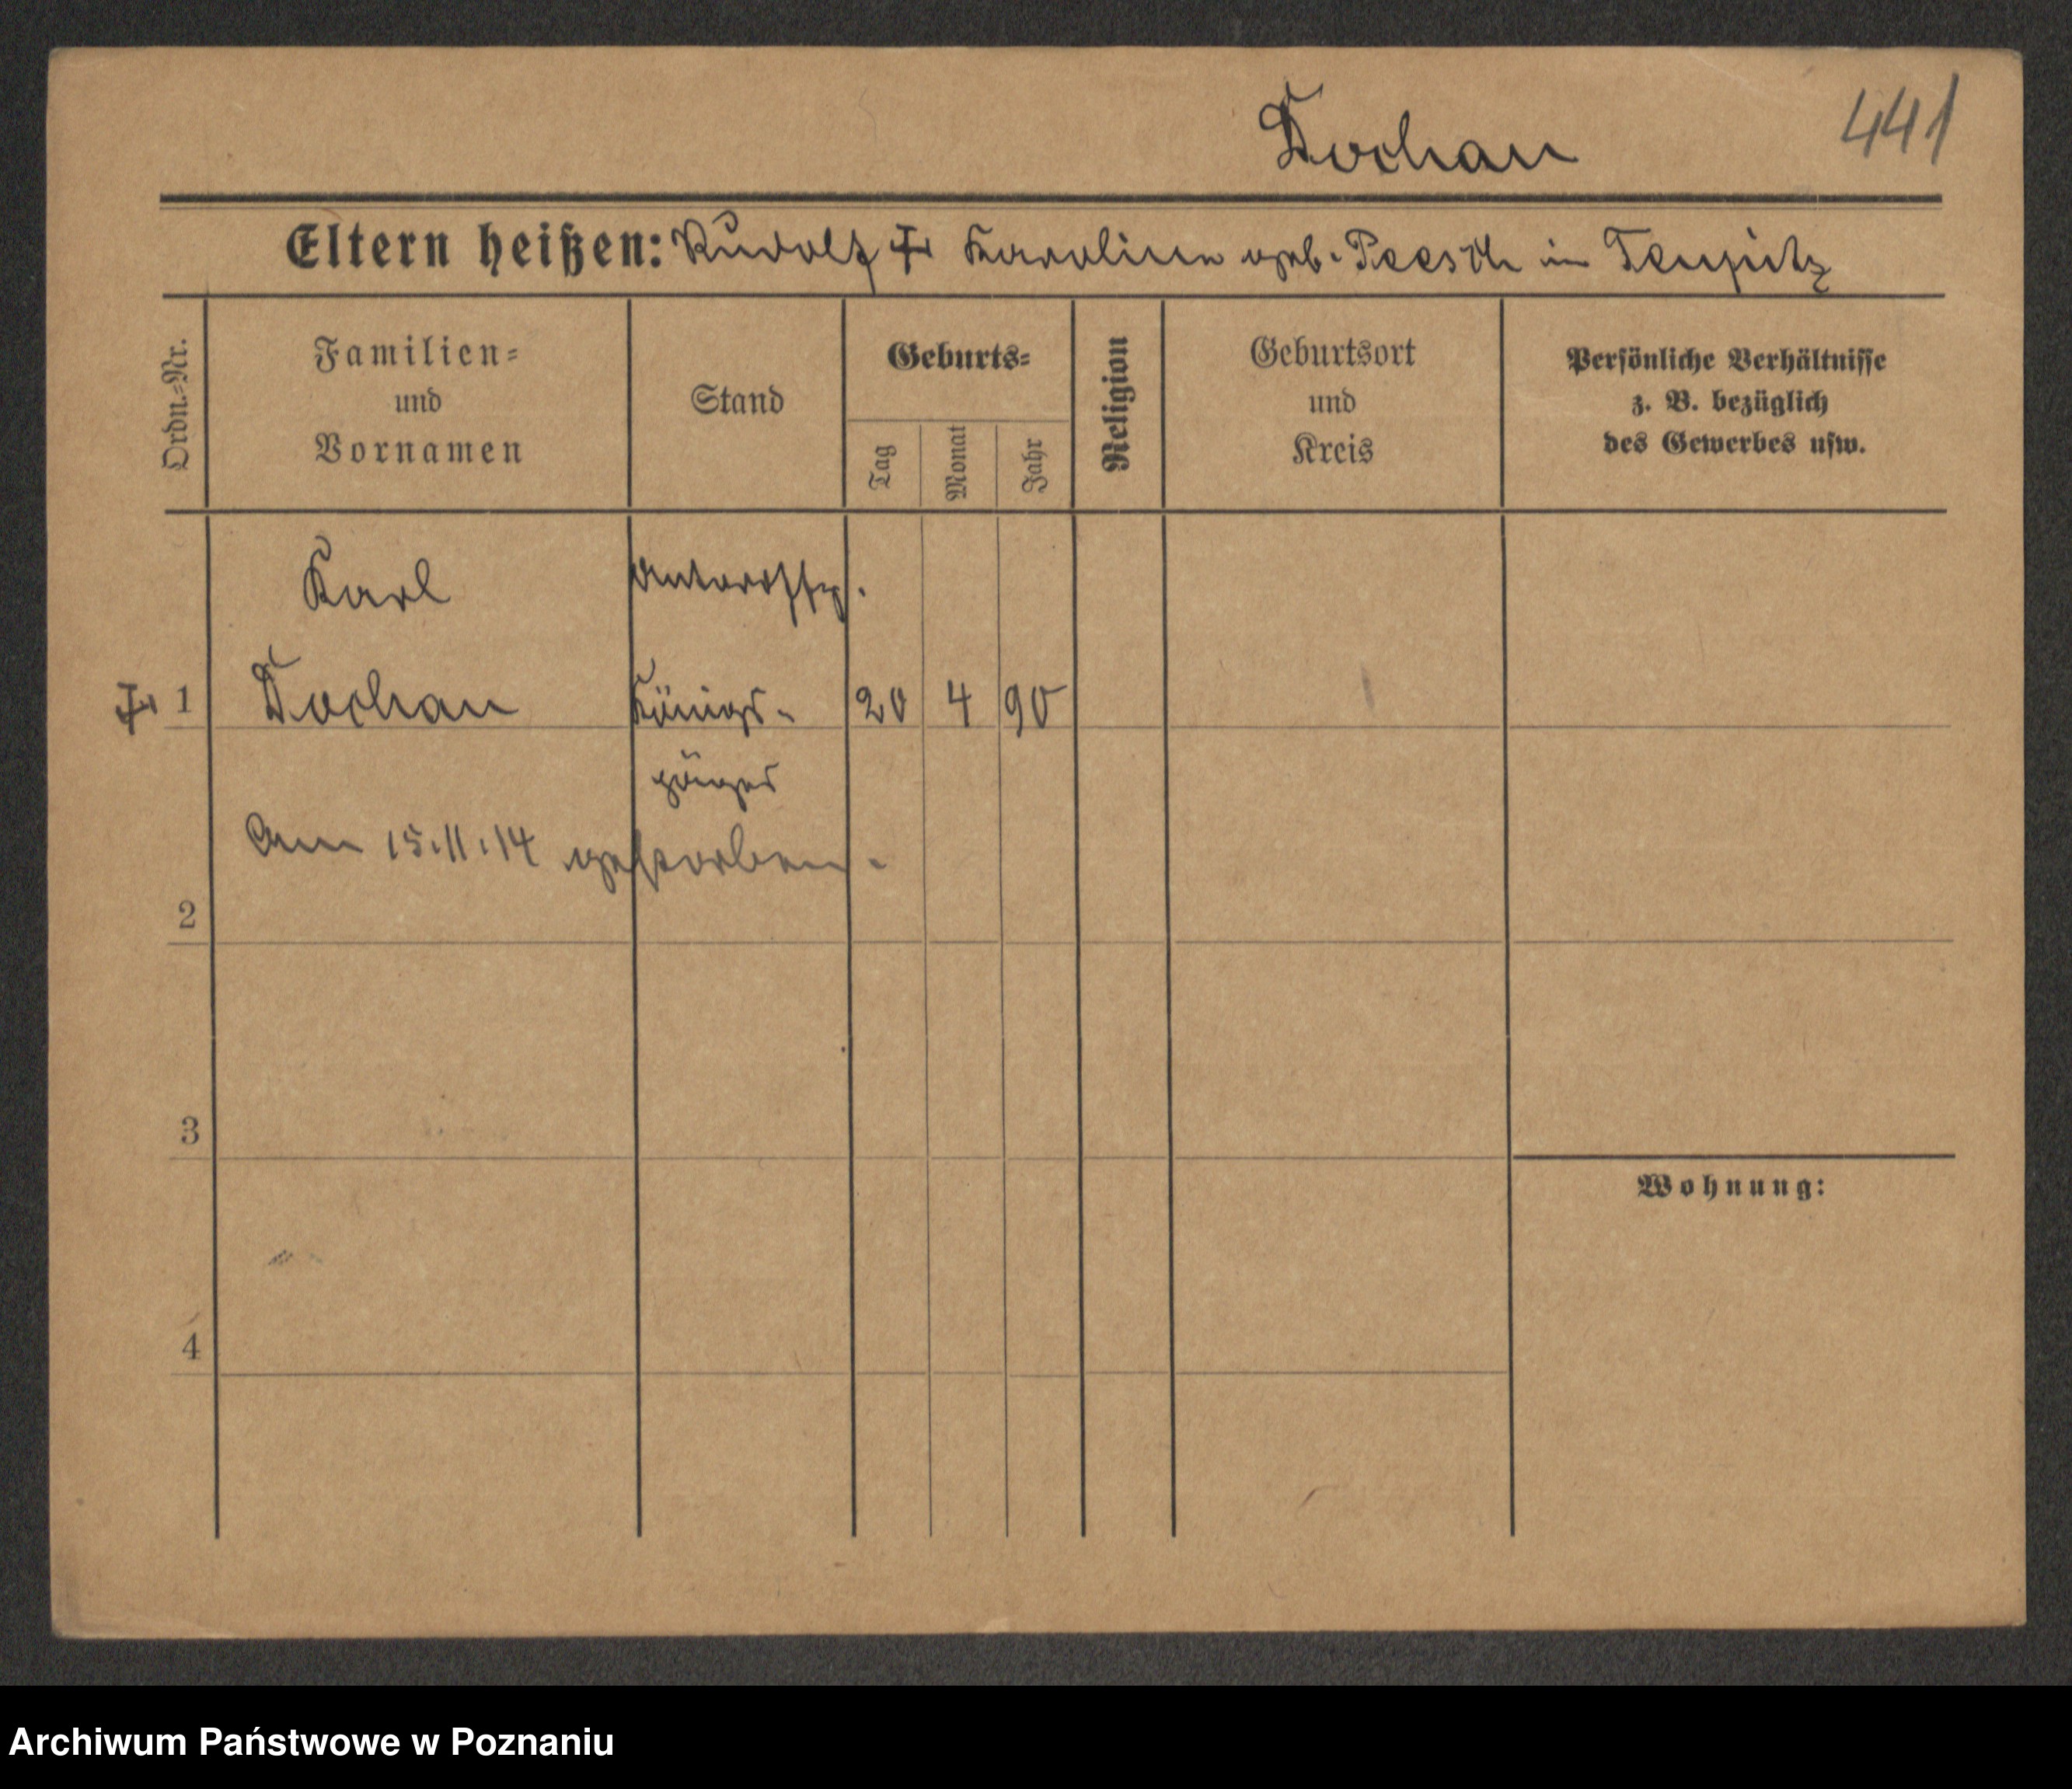 Dochan
441
Eltern heißen: Rudolf † Karoline geb. Peesch in Teupitz
Ordn.-Nr.
Familien-
und
Vornamen
Stand
Geburts-
Tag
Monat
Jahr
Religion
Geburtsort
und
Kreis
Persönliche Verhältnisse
z. B. bezüglich
des Gewerbes usw.
Karl
Unteroffz.
† 1 Dochan Königs- 20 4 90
jäger
Am 15.11.14 gestorben.
2
3
Wohnung:
4
Archiwum Państwowe w Poznaniu